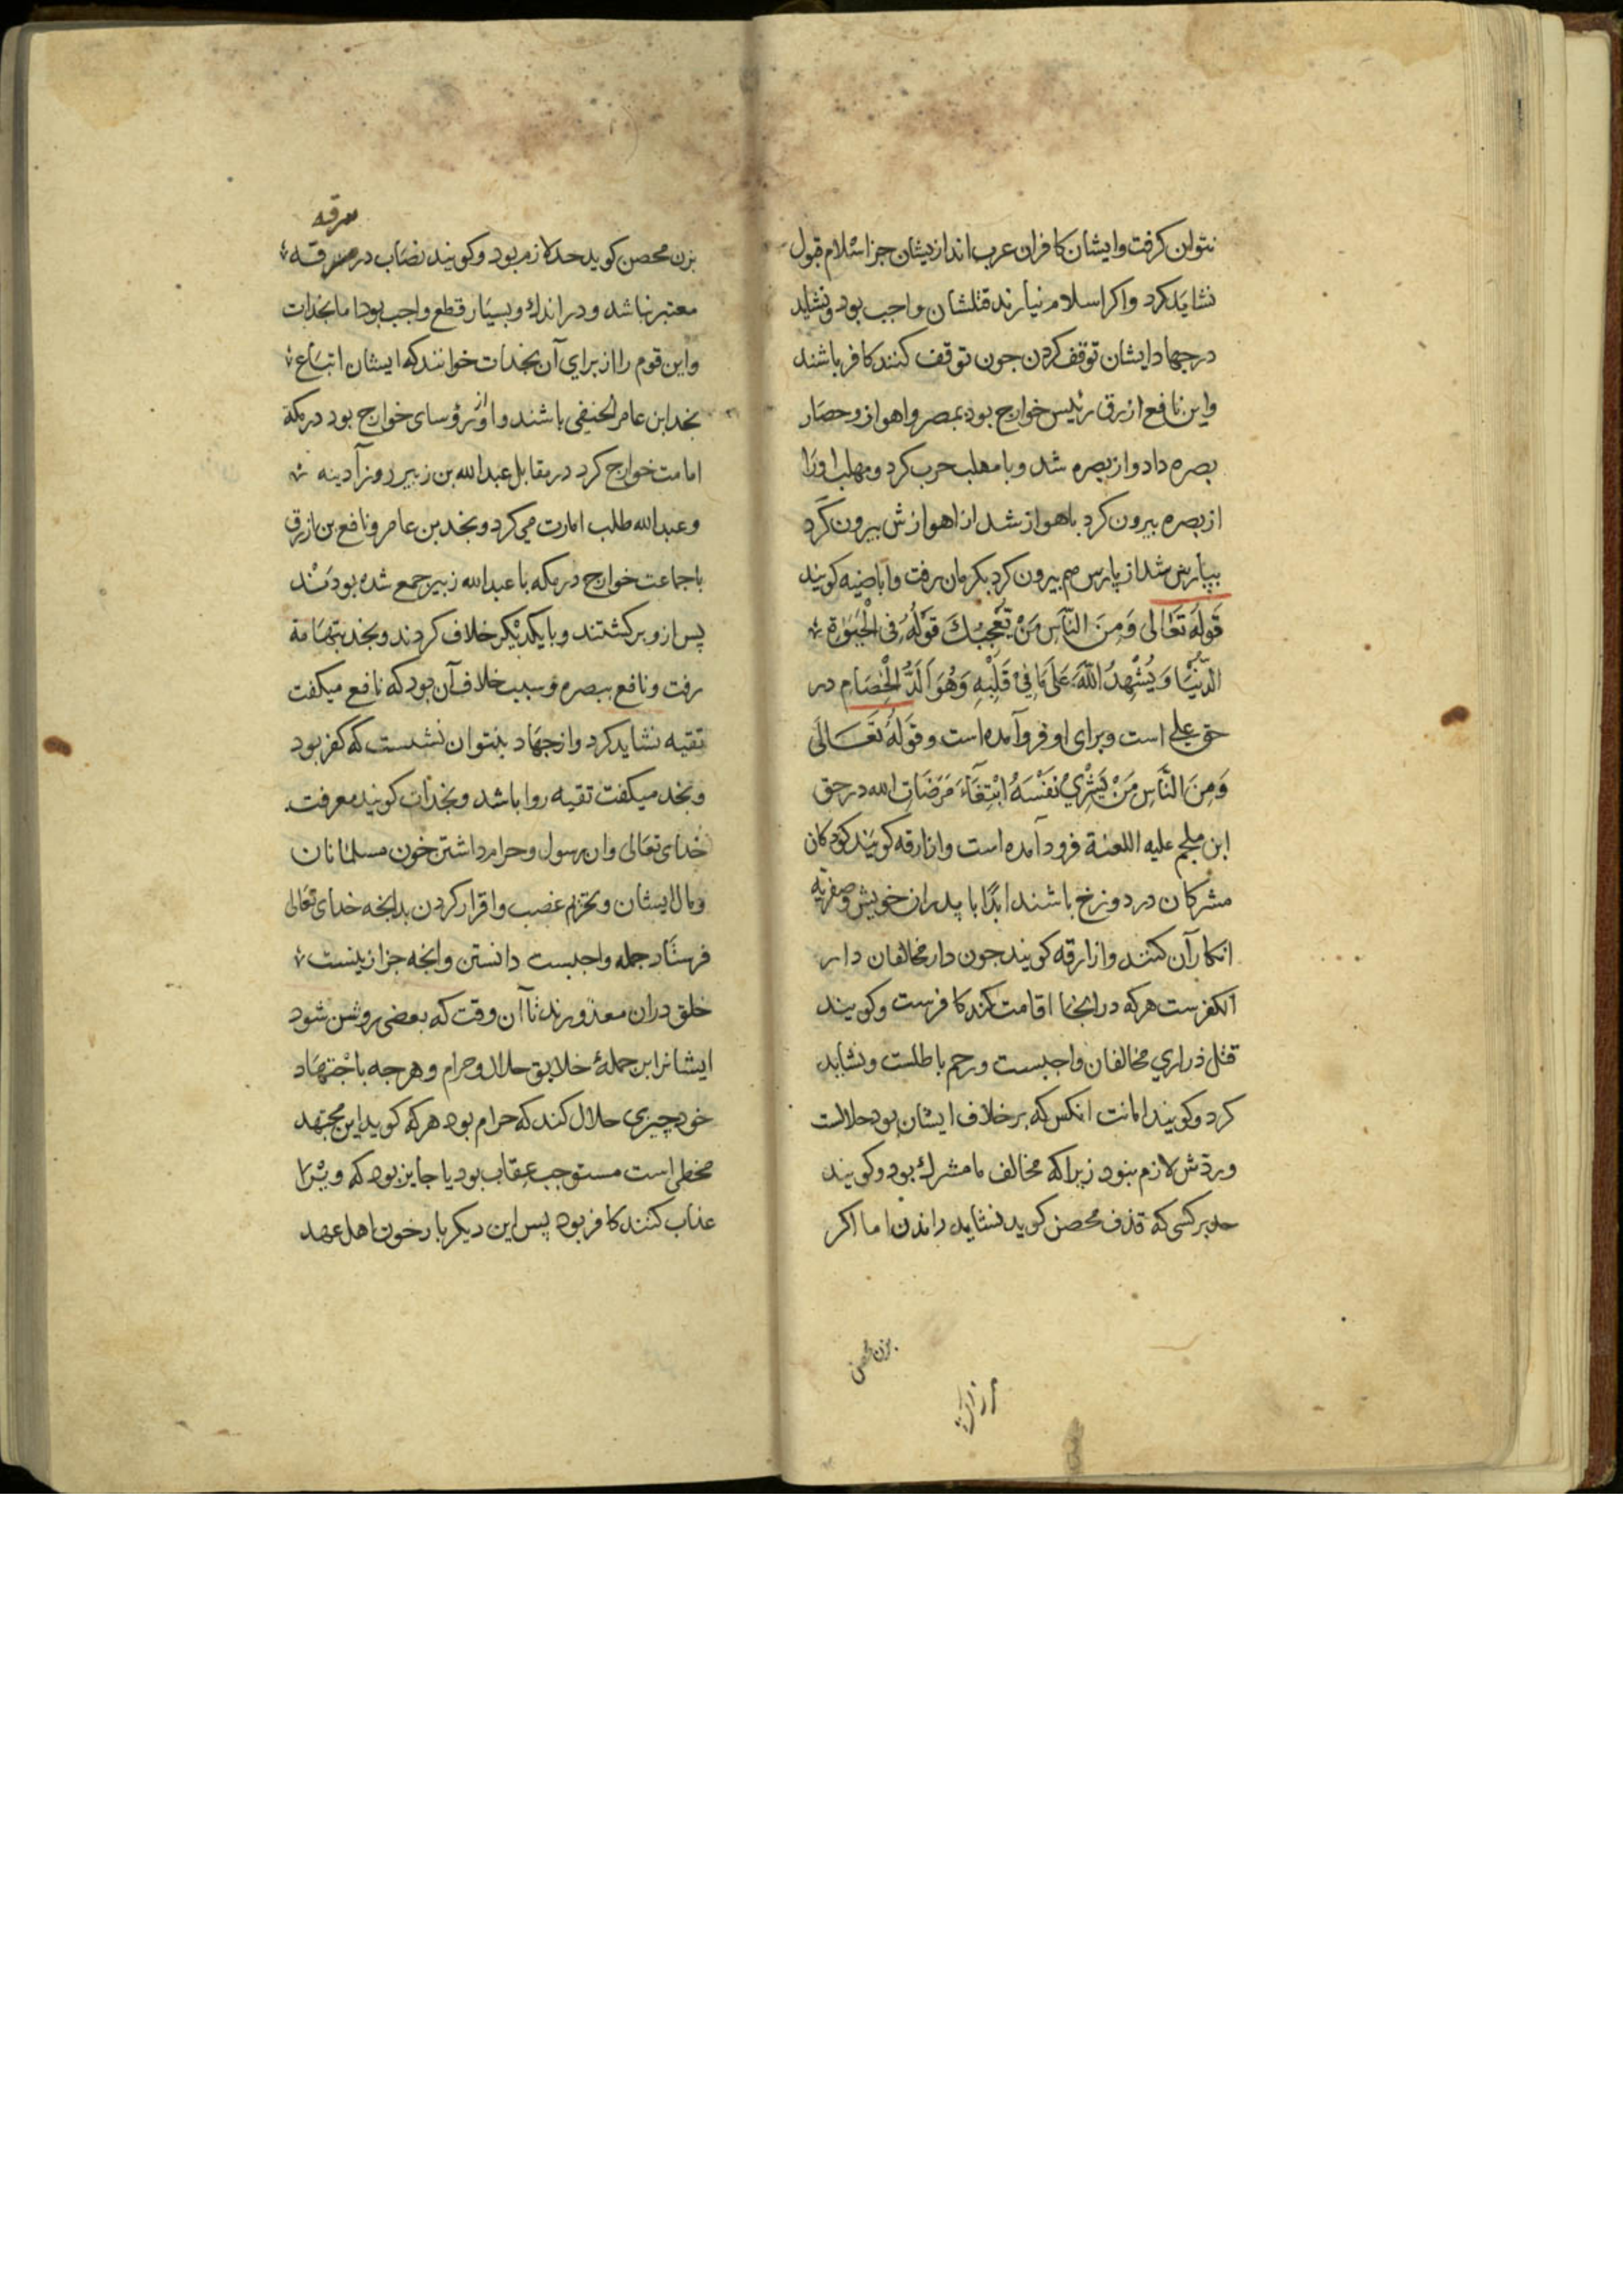 نتوان کرفت وایشان کافران عرب اند ازیشان جز اسلام قبول
نشاید کرد واکر اسلام نیارند قتلشان واجب بود ونشاید
در جهاد ایشان توقف کردن جون توقف کنند کافر باشند
واین نافع ازرق رئیس خوارج بود بمصر واهواز وحصار
بصره داد واز بصره شد وبا مهلب حرب کرد ومهلب اورا
از بصره بیرون کرد باهواز شد از اهوازش بیرون کرد
بپارس شد از پارس هم بیرون کرد بکرمان رفت واباضیه کویند
قَوله تَعَالی وَمِنَ النَّاسِ مَنْ یُعْجِبُكَ قَوْلُهُ فِی الْحَیٰوةِ
الدُّنْیَا وَیُشْهِدُ اللّٰهَ عَلَی مَا فِیْ قَلْبِهِ وَهُوَ اَلَدُّ الْخِصَامِ در
حق علی است وبرای او فروآمده است وقَوله تَعَالَی
وَمِنَ النَّاسِ مَنْ یَشْرِیْ نَفْسَهُ ابْتِغَآءَ مَرْضَاتِ الله در حق
ابن ملجم علیه اللعنة فرود آمده است وازارقه کویند کودکان
مشرکان در دوزخ باشند ابدًا با پدران خویش وصفریّه
انکار آن کنند وازارقه کویند جون دار مخالفان دار
الکفرست هرکه در انجا اقامت کند کافرست وکویند
قتل ذراري مخالفان واجبست ورحم باطلست ونشاید
کرد وکویند امانت انکس که برخلاف ایشان بود حلالست
وردّش لازم نبود زیرا که مخالف ما مشرك بود وکویند
حد برکسی که قذف محصن کوید نشاید راندن اما اکر
بزن محصن
سرقه
بزن محصن کوید حد لازم بود وکویند نصاب در سرقه
معتبر نباشد ودر اندك وبسیار قطع واجب بود اما نجدات
واین قوم را از برای آن نجدات خوانند که ایشان اتباع
نجد ابن عامر الحنیفی باشند واو از رؤسای خوارج بود در مکه
امامت خوارج کرد در مقابل عبدالله بن زبیر روز آدینه
وعبدالله طلب امارت می کرد ونجد بن عامر ونافع بن ازرق
با جماعت خوارج در مکه با عبدالله زبیر جمع شده بودند
پس ازو برکشتند وبا یکدیکر خلاف کردند ونجد بتهامة
رفت ونافع ببصره وسبب خلاف آن بود که نافع میکفت
تقیه نشاید کرد واز جهاد بنتوان نشست که کفر بود
ونجد میکفت تقیه روا باشد ونجدات کویند معرفت
خدای تعالی وان رسول وحرام داشتن خون مسلمانان
ومال ایشان وتحریم غصب واقرار کردن بدانجه خدای تعالی
فرستاد جمله واجبست دانستن وانجه جز ازینست
خلق دران معذورند تا آن وقت که بعضی روشن شود
ایشانرا این جملهٔ خلایق حلال وحرام وهرجه باجتهاد
خود چیزی حلال کند که حرام بود هرکه کوید این مجتهد
مخطی است مستوجب عقاب بود یا جایز بود که ویرا
عذاب کنند کافر بود پس این دیکر بار خون اهل عهد